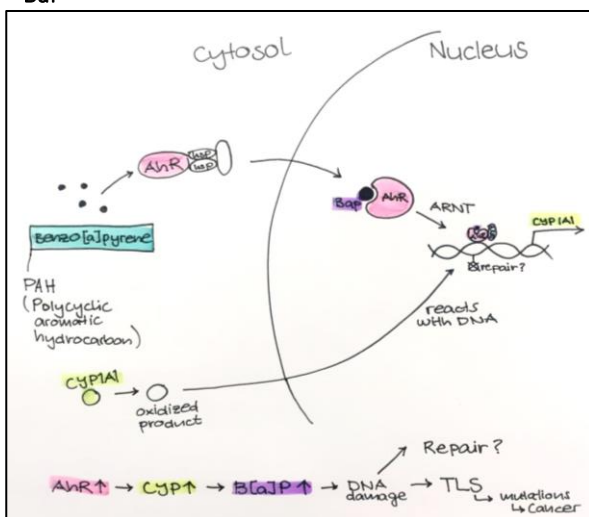 BaP
Cytosol
Nucleus
AhR
hsp
hsp
Benzo[a]pyrene
PAH
(Polycyclic
aromatic
hydrocarbon)
Bap
AhR
ARNT
CYP1A1
repair?
reacts
with DNA
CYP1A1
oxidized
product
Repair?
AhR↑ → CYP↑ → B[a]P↑ → DNA
damage → TLS
↳ mutations
↳ Cancer